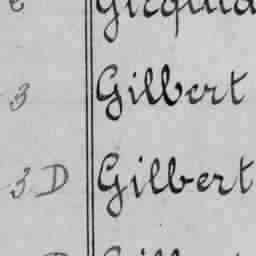 3 Gilbert
3 D Gilbert